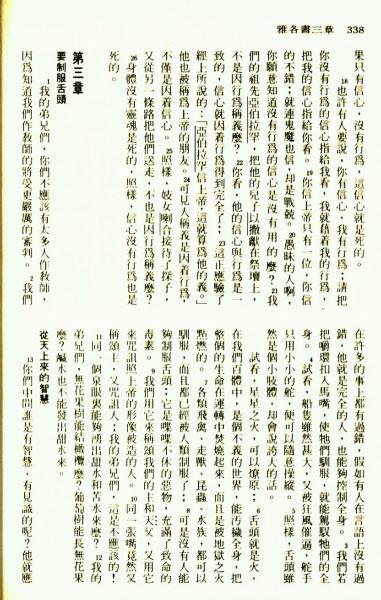 雅各書三章 338
果只有信心，沒有行為，這信心就是死的。
18也許有人要說，你有信心，我有行為；請把
你沒有行為的信心指給我看，我就藉着我的行為，
把我的信心指給你看。19你信上帝只有一位，你信
的不錯；就連鬼魔也信，却是戰兢。20愚昧的人啊，
你願意知道沒有行為的信心是沒有用的麼？21我
們的祖先亞伯拉罕，把他的兒子以撒獻在祭壇上，
不是因行為稱義麼？22你看，他的信心與行為是一
致的，信心就因着行為得到完全了；23這正應驗了
經上所說的：「亞伯拉罕信上帝，這就算為他的義。」
他也被稱為上帝的朋友。24可見人稱義是因着行為，
不僅是因着信心。25照樣，妓女喇合接待了探子，
又從另一條路把他們送走，不也是因行為稱義麼？
26身體沒有靈魂是死的，照樣，信心沒有行為也是
死的。
第三章
要制服舌頭
1我的弟兄們，你們不應該有太多人作教師，
因為知道我們作教師的將受更嚴厲的審判。2我們
在許多的事上都有過錯，假如有人在言語上沒有過
錯，他就是完全的人，也能夠控制全身。3我們若
把嚼環扣入馬嘴，使牠們馴服，就能駕馭牠們的全
身。4試看，船隻雖然甚大，又被狂風催逼，舵手
只用小小的舵，便可以隨意操縱。5照樣，舌頭雖
然是個小肢體，却會說誇大的話。
試看，星星之火，可以燎原；6舌頭就是火，
在我們百體中，是個不義的世界，能汚穢全身，把
整個的生命在運轉中焚燒起來，而且是被地獄之火
點燃的。7各類飛禽、走獸、昆蟲、水族，都可以
馴服，而且都已經被人類制服了；8可是沒有人能
夠制服舌頭；它是喋喋不休的惡物，充滿了致命的
毒素。9我們用它來稱頌我們的主和天父，又用它
來咒詛照上帝的形像被造的人。10同一張嘴竟然又
稱頌主，又咒詛人；我的弟兄們，這是不應該的！
11同一個泉眼裏能夠湧出甜水和苦水來麼？12我的
弟兄們，無花果樹能結橄欖麼？葡萄樹能長無花果
麼？鹹水也不能發出甜水來。
從天上來的智慧
13你們中間誰是有智慧、有見識的呢？他就應